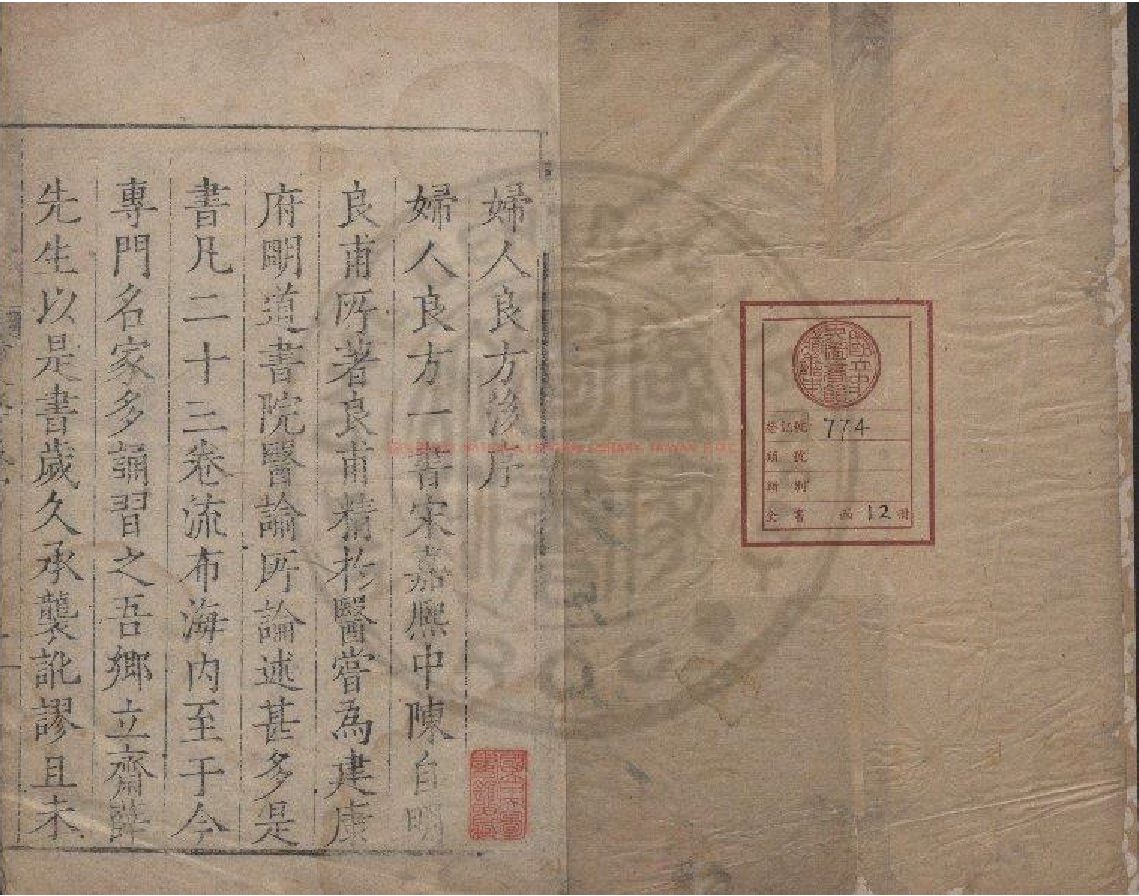 登記號 774
類號
辦別
全書 函 12 冊
婦人良方後序
婦人良方一書宋嘉熙中陳自明
良甫所著良甫精於醫嘗為建康
府明道書院醫論所論述甚多是
書凡二十三卷流布海內至于今
專門名家多誦習之吾鄉立齋薛
先生以是書歲久承襲訛謬且未